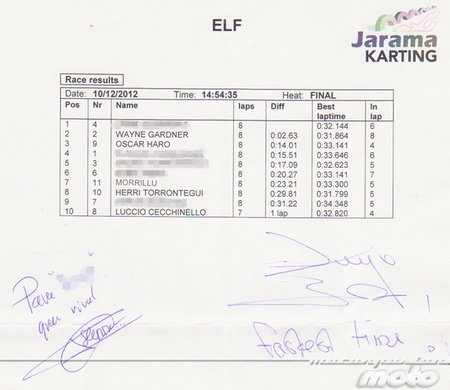 ELF
Jarama
KARTING
Race results
Date: 10/12/2012 Time: 14:54:35 Heat: FINAL
Pos Nr Name laps Diff Best laptime In lap
1 4 8 0:32.144 6
2 2 WAYNE GARDNER 8 0:02.63 0:31.864 8
3 9 OSCAR HARO 8 0:14.01 0:33.141 4
4 1 8 0:15.51 0:33.646 6
5 3 8 0:17.09 0:32.623 5
6 6 8 0:20.27 0:33.141 7
7 11 MORRILLU 8 0:23.21 0:33.300 5
8 10 HERRI TORRONTEGUI 8 0:29.81 0:31.799 5
9 7 8 0:31.22 0:34.348 5
10 8 LUCCIO CECCHINELLO 7 1 lap 0:32.820 4
Para
Fastest time
moto